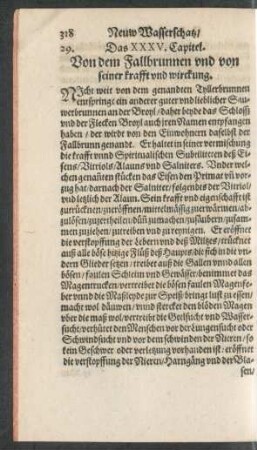 318 Neuw Wasserschatz/
29. Das XXXV. Capitel.
Von dem Fallbrunnen vnd von
seiner krafft vnd wirckung.
NIcht weit von dem genandten Tyllerbrunnen
entspringt ein anderer guter vnd lieblicher Sau-
werbrunnen an der Brohl/ daher beyde das Schloß
vnd der Flecken Brohl auch jren Namen empfangen
haben / der wirdt von den Einwohnern daselbst der
Fallbrunn genandt. Er haltet in seiner vermischung
die krafft vnnd Spiritualischen Substitieen deß Ei-
sens/ Vitriols/ Alauns vnd Salniters. Vnder wel-
chen genañten stücken das Eisen den Primat vñ vor-
zug hat/ darnach der Salniter/ folgends der Vitriol/
vnd letzlich der Alaun. Sein krafft vnd eigenschafft ist
zu trücknen/ zu eröffnen/ mittelmässig zu erwärmen/ ab-
zulösen/ zu zertheilen/ düñ zu machen/ zu säubern/ zusam-
men zu ziehen/ zu treiben vnd zu reynigen. Er eröffnet
die verstopffung der Lebern vnd deß Miltzes/ trücknet
auß alle böse hitzige Flüß deß Haupts/ die sich in die vn-
dern Glieder setzen/ treibet auß die Gallen vnnd allen
bösen/ faulen Schleim vnd Gewässer/ benimmet das
Magentrucken/ vertreibet die bösen faulen Magenfe-
ber vnnd die Masleyde zur Speiß/ bringt lust zu essen/
macht wol däuwen/ vnnd stercket den blöden Magen
vber die maß wol/ vertreibt die Geelsucht vnd Wasser-
sucht/ verhütet den Menschen vor der Lungensucht oder
Schwindsucht vnd vor dem schwinden der Nieren/ so
kein Geschwer oder verletzung vorhanden ist/ eröffnet
die verstopffung der Nieren/ Harngäng vnd der Bla-
sen/